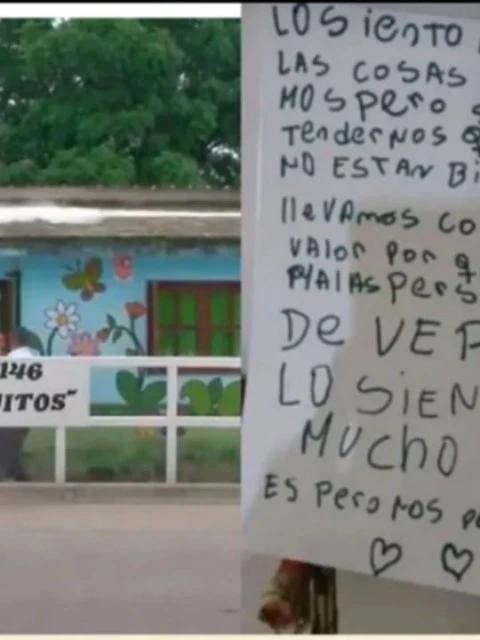 146
ITOS"
LO SiENTO
LAS COSAS
MOS PerO
TeNderNOS
NO ESTAN Bi
lleVAmos CO
VAlOr POr q
PARAS PerS
De VER
LO SIEN
MUCHO
ES PerO NOS Pe